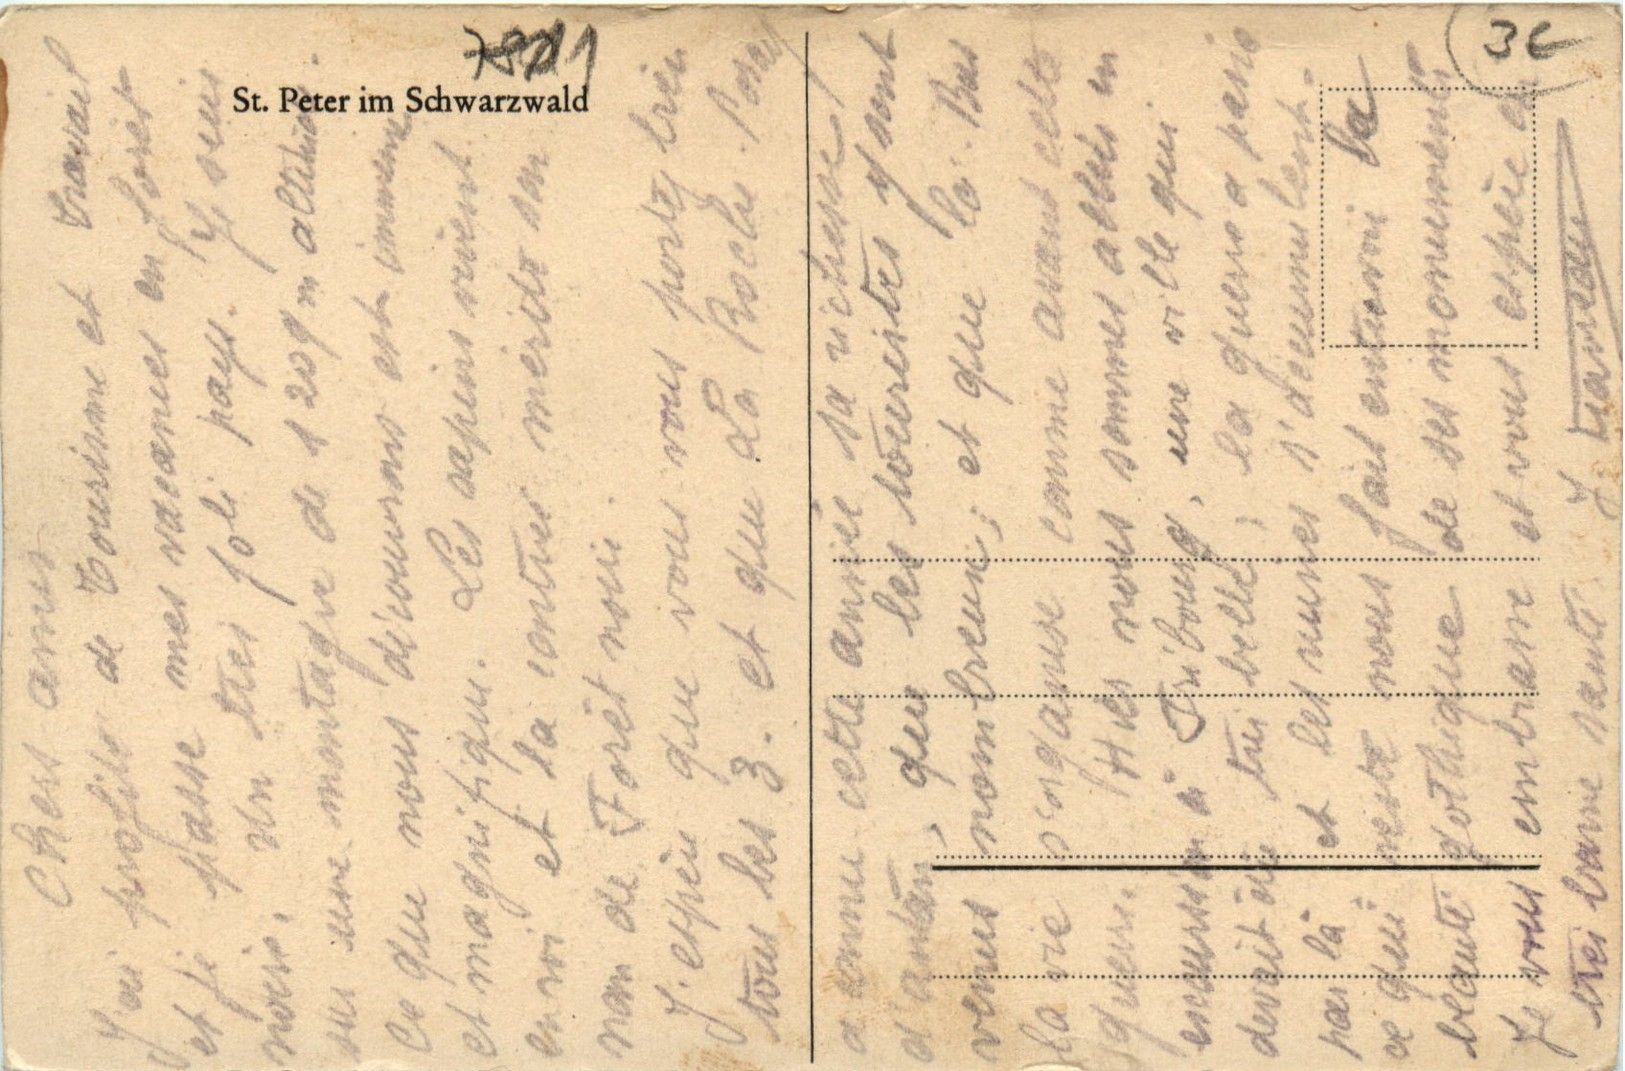 St. Peter im Schwarzwald
3c
Chers amis
J'ai profité de Tourisme et Travail
et je passe mes vacances en forêt
noire. Un très joli pays. Je suis
sur une montagne de 1209 m altitude.
Ce que nous découvrons est immense
et magnifique. Les sapins rivent
envi et la contrée mérite son
nom de Forêt noire.
J'espère que vous vous portez bien
tous les 3. et que La Roche-Posay
a connu cette année sa richesse
d'antan, que les touristes y sont
venus nombreux; et que là-bas
la vie s'organise comme avant cette
guerre. Hier nous sommes allés en
excursion à Fribourg, une ville qui
devait être très belle; la guerre a passé
par là et les ruines s'accumulent.
ce qui reste nous fait entrevoir la
beauté gothique de ses monuments
Je vous embrasse et vous espère en
très bonne santé. J.